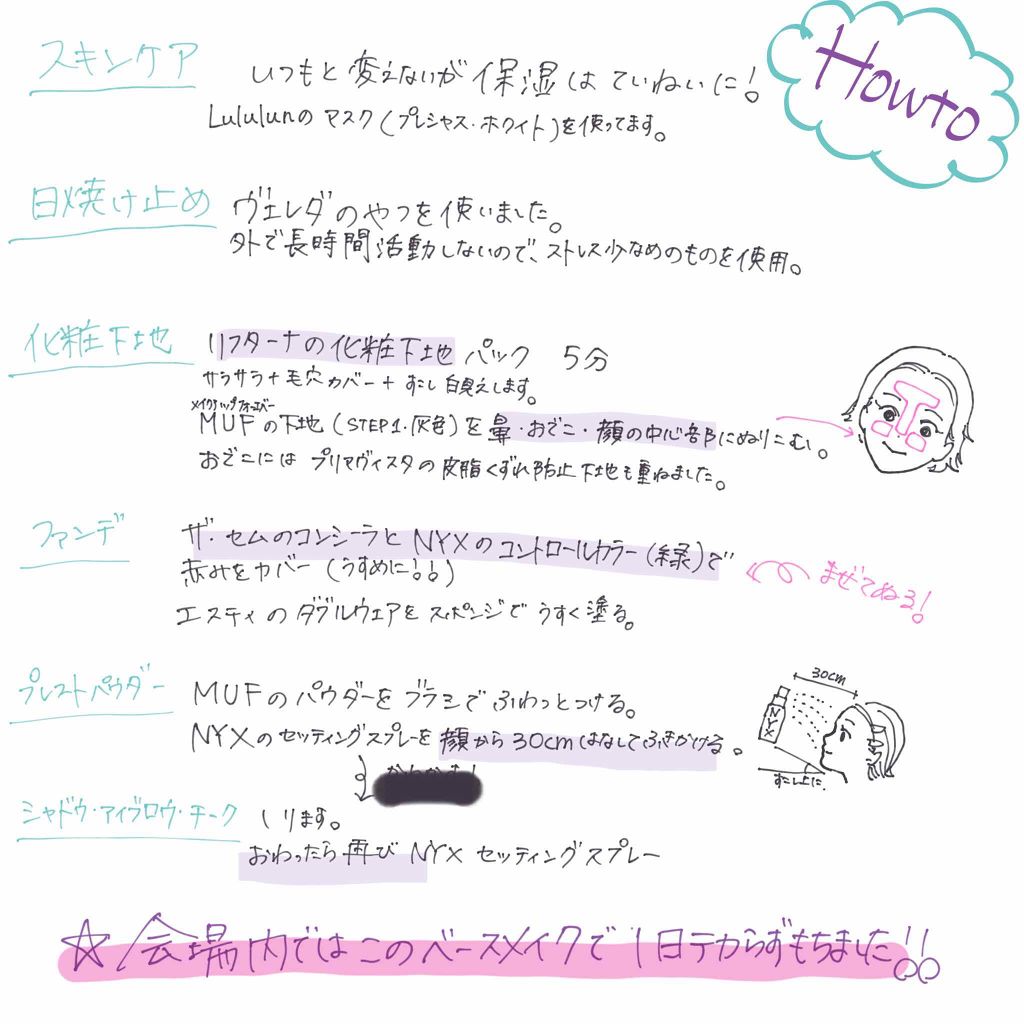 Howto
スキンケア
いつもと変えないが保湿はていねいに!
Lululunのマスク(プレシャス・ホワイト)を使ってます。
日焼け止め
ヴェレダのやつを使いました。
外で長時間活動しないので、ストレス少なめのものを使用。
化粧下地
リフターナの化粧下地 パック 5分
サラサラ+毛穴カバー+
メイクアップフォーエバー
MUFの下地(STEP1・灰色)を鼻・おでこ・顔の中心部にぬりこむ。
おでこには プリマヴィスタの皮脂くずれ防止下地も重ねました。
ファンデ
ザ・セムのコンシーラとNYXのコントロールカラー(緑)で
赤みをカバー(うすめに!!)
まぜてぬる!
エスティのダブルウェアをスポンジでうすく塗る。
プレストパウダー
MUFのパウダーをブラシでふわっとつける。
NYXのセッティングスプレーを顔から30cmはなしてふきかける。
30cm
NYX
すこし上に.
シャドウ・アイブロウ・チーク
します。
おわったら再び NYX セッティングスプレー
☆会場内ではこのベースメイクで1日テカらずもちました!!